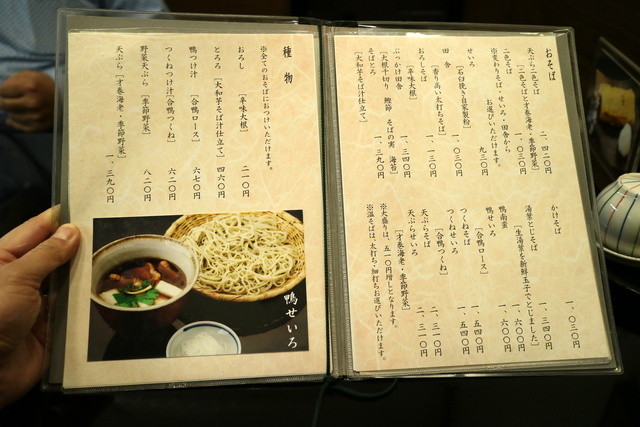 おそば
天ぷら二色そば
［二色そばと才巻海老・季節野菜］
二、四二〇円
二色そば
一、〇三〇円
※変わりそば・せいろ・田舎から
お選びいただけます。
せいろ
九三〇円
［石臼挽き自家製粉］
田舎
一、〇三〇円
［香り高い太打ちそば］
おろしそば
一、一三〇円
［辛味大根］
ぶっかけ田舎
一、三四〇円
［大根千切り 鰹節 そばの実 海苔］
そばとろ
一、三九〇円
［大和芋そば汁仕立て］
かけそば
一、〇三〇円
湯葉とじそば
一、三四〇円
［生湯葉を新鮮玉子でとじました］
鴨南蛮
一、六〇〇円
鴨せいろ
一、六〇〇円
［合鴨ロース］
つくねせいろ
一、五四〇円
つくねそば
一、五四〇円
［合鴨つくね］
天ぷらそば
二、三一〇円
天ぷらせいろ
二、三一〇円
［才巻海老・季節野菜］
※大盛りは、五一〇円増しとなります。
※温そばは、太打ち・細打ちお選びいただけます。
種物
※全てのおそばにおつけいただけます。
おろし
［辛味大根］
二一〇円
とろろ
［大和芋そば汁仕立て］
四六〇円
鴨つけ汁
［合鴨ロース］
六七〇円
つくねつけ汁［合鴨つくね］
六二〇円
野菜天ぷら
［季節野菜］
八二〇円
天ぷら［才巻海老・季節野菜］
一、三九〇円
鴨せいろ